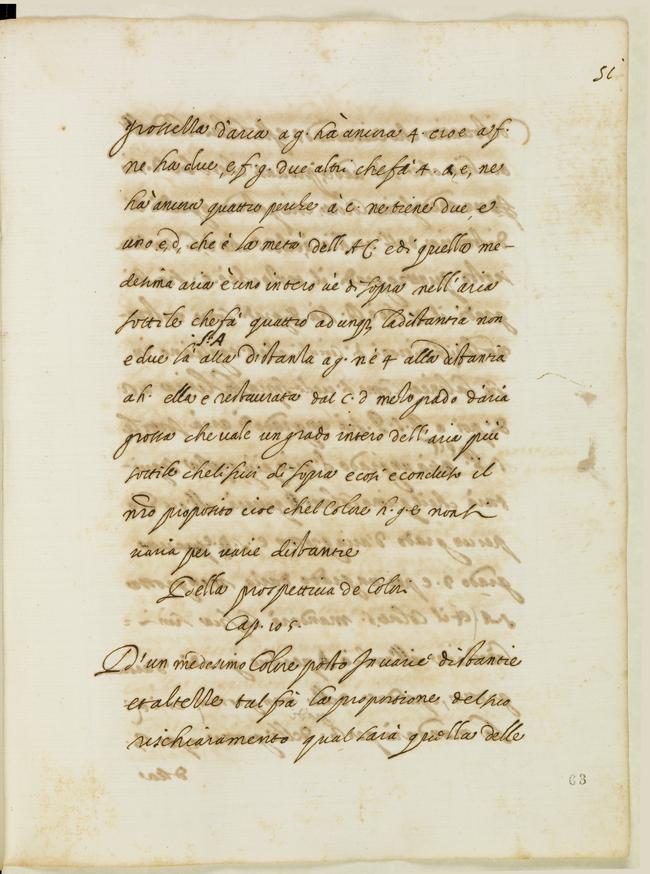 51
grossella d'aria a g. hà ancora 4. cioe a f.
ne ha due, e, f. g. due altri che fà 4. a, e, ne
hà ancora quattro perche à c. ne tiene due, e
uno e, d, che è la metà dell'AC. e di quella me-
desima aria è uno intero vè di sopra nell'aria
sottile che fà quattro adunq, la distantia non
e due la alla distanza a g. nè 4 alla distantia
a h. ella e restaurata dal c. d mezo grado d'aria
grossa che vale un grado intero dell'aria più
sottile che li sia di sopra e così e concluso il
nro proposito cioe chel Colore h. g. e non si
varia per varie distantie
Della prospettiva de Colori
Cap. 105.
D'un medesimo Colore posto In varie distantie
et altezze tal fià la proportione del suo
rischiaramento qual sarà quella delle
63